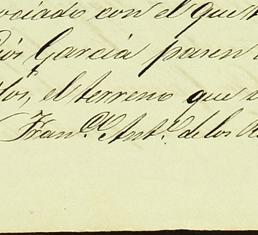 ociado con el que
García paren
los, el terreno que
Fran.co Ant.o de los